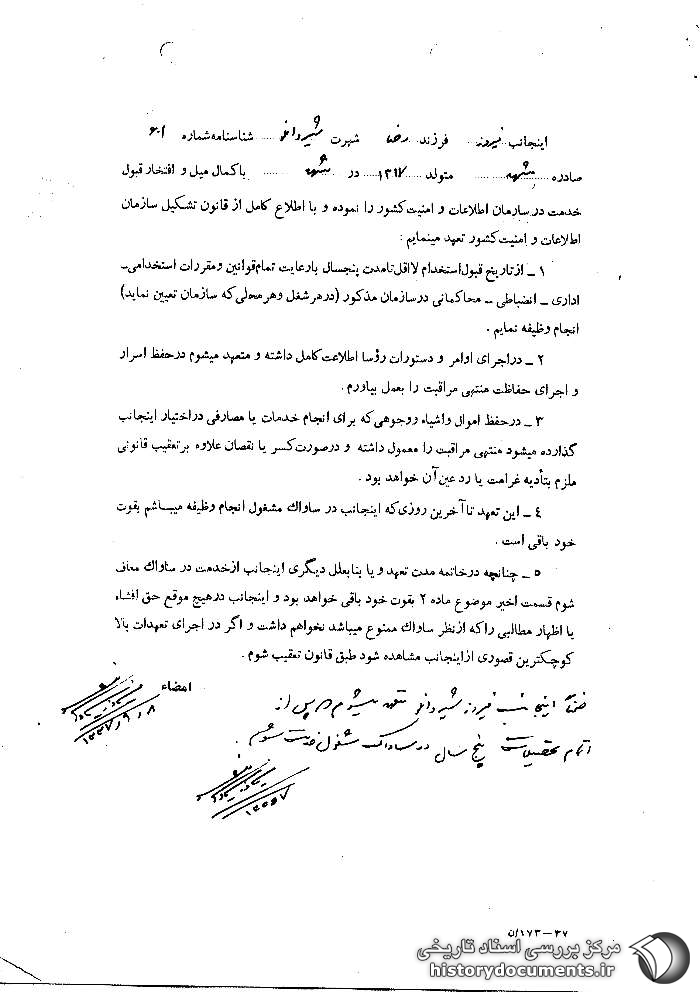 اینجانب فیروز فرزند رضا شهرت شیردانو شناسنامه شماره ۶۰۱
صادره مشهد متولد ۱۳۱۷ در مشهد باکمال میل و افتخار قبول
خدمت در سازمان اطلاعات و امنیت کشور را نموده و با اطلاع کامل از قانون تشکیل سازمان
اطلاعات و امنیت کشور تعهد مینمایم :
۱ ـ ازتاریخ قبول استخدام لااقل تامدت پنجسال بارعایت تمام قوانین ومقررات استخدامی ـ
اداری ـ انضباطی ـ محاکماتی درسازمان مذکور (درهرشغل وهرمحلی که سازمان تعیین نماید)
انجام وظیفه نمایم .
۲ ـ دراجرای اوامر و دستورات رؤسا اطلاعت کامل داشته و متعهد میشوم درحفظ اسرار
و اجرای حفاظت منتهی مراقبت را بعمل بیاورم .
۳ ـ درحفظ اموال واشیاء ووجوهی که برای انجام خدمات یا مصارفی دراختیار اینجانب
گذارده میشود منتهی مراقبت را معمول داشته و درصورت کسر یا نقصان علاوه برتعقیب قانونی
ملزم بتأدیه غرامت یا رد عین آن خواهد بود .
٤ ـ این تعهد تا آخرین روزی که اینجانب در ساواك مشغول انجام وظیفه میباشم بقوت
خود باقی است .
٥ ـ چنانچه درخاتمه مدت تعهد و یا بنابعلل دیگری اینجانب ازخدمت در ساواك معاف
شوم قسمت اخیر موضوع ماده ۲ بقوت خود باقی خواهد بود و اینجانب درهیچ موقع حق افشاء
یا اظهار مطالبی راکه ازنظر ساواك ممنوع میباشد نخواهم داشت و اگر در اجرای تعهدات بالا
کوچکترین قصوری ازاینجانب مشاهده شود طبق قانون تعقیب شوم .
امضاء
ضمناً اینجانب فیروز شیردانو متعهد میشوم پس از
اتمام تحصیلات پنج سال در ساواک مشغول خدمت شوم .
۳۷-۱۷۳/ن
مرکز بررسی اسناد تاریخی
historydocuments.ir